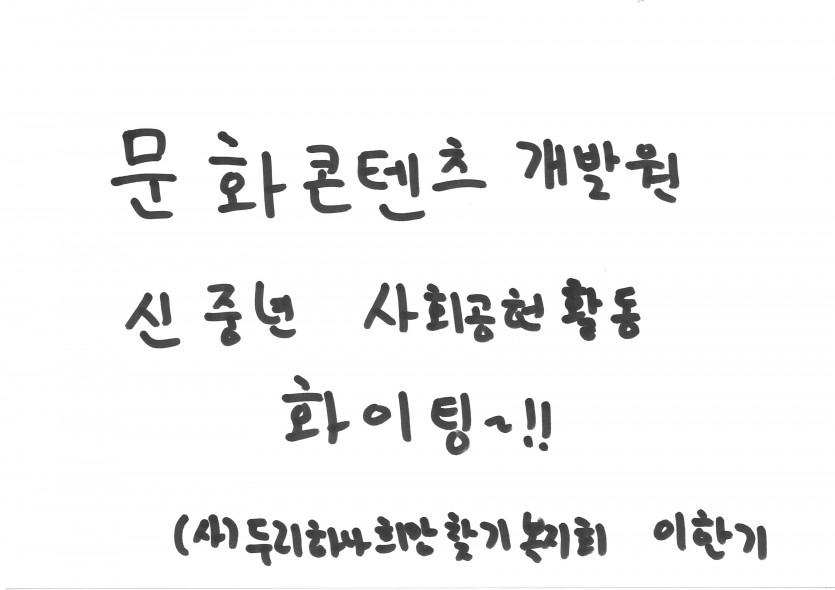 문화콘텐츠 개발원
신중년 사회공헌활동
화이팅~!!
(사)두리하나희망찾기복지회 이한기